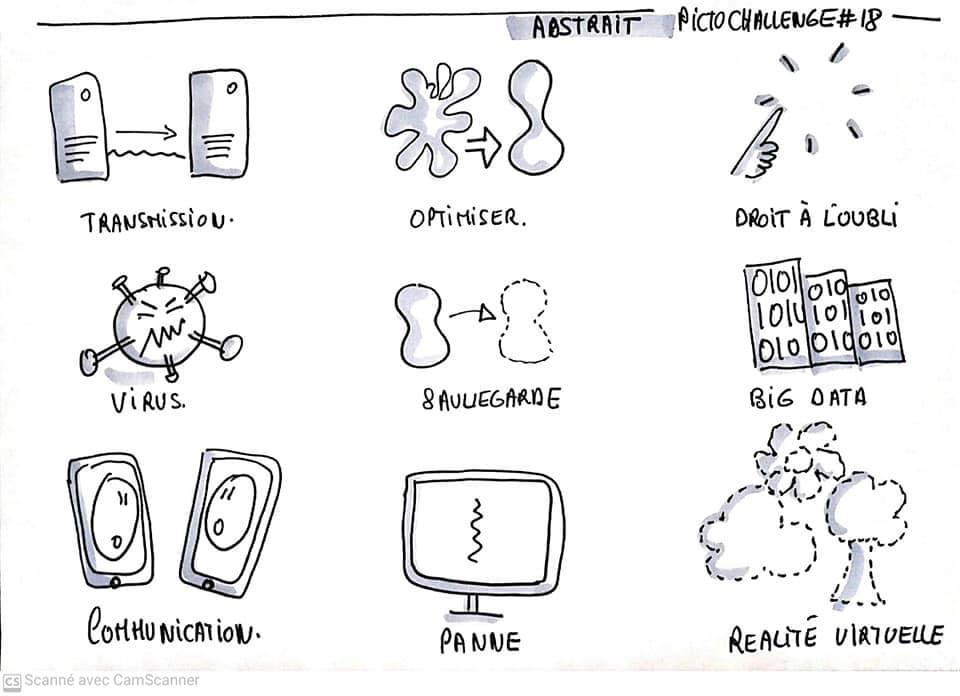 ABSTRAIT PICTOCHALLENGE#18
TRANSMISSION. OPTIMISER. DROIT À L'OUBLI
0101 010 010
1010 101 101
010 010 010
VIRUS. SAUVEGARDE BIG DATA
COMMUNICATION. PANNE REALITÉ VIRTUELLE
CS Scanné avec CamScanner